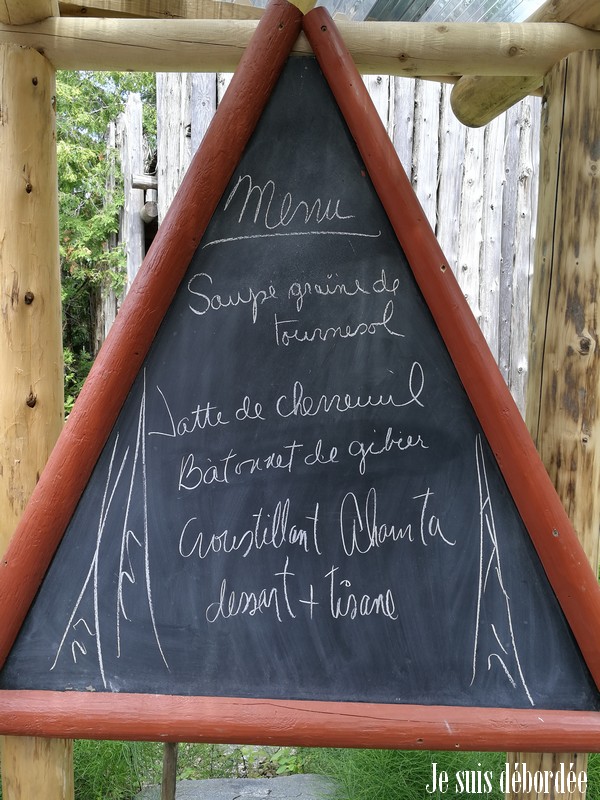 Menu
Soupe graine de
tournesol
Jatte de chevreuil
Bâtonnet de gibier
Croustillant
dessert + tisane
Je suis débordée